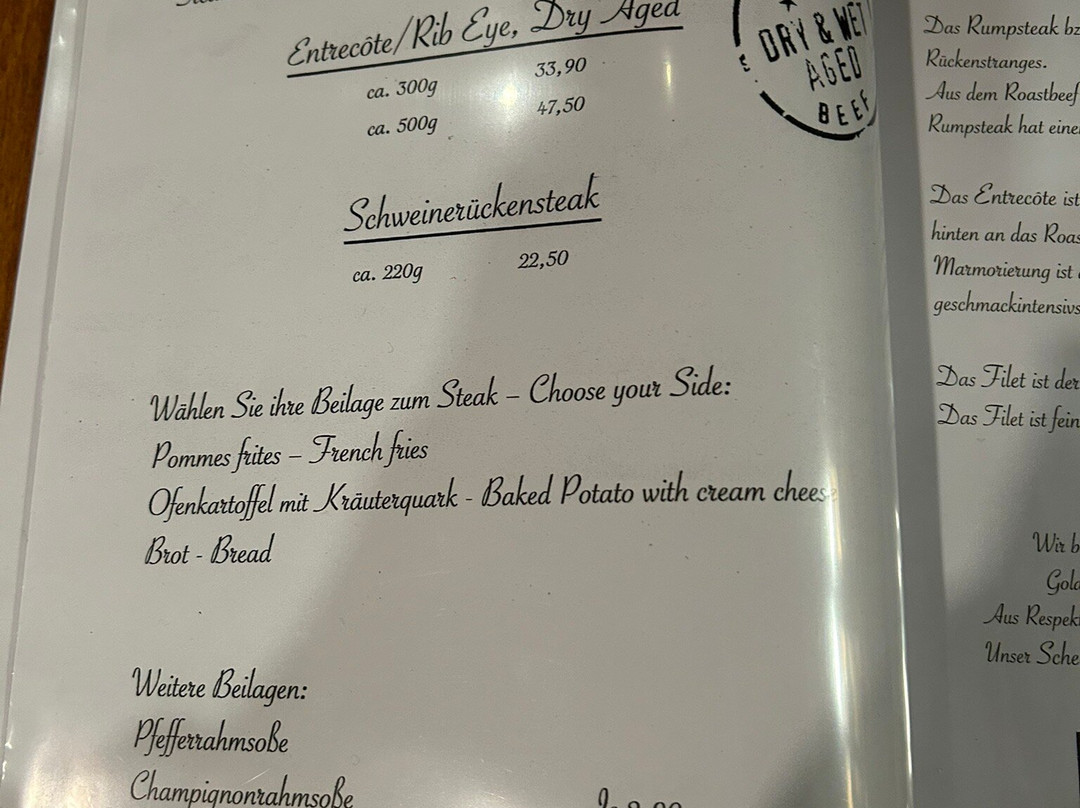 Entrecôte/Rib Eye, Dry Aged
ca. 300g 33,90
ca. 500g 47,50
DRY & WET
AGED
BEEF
Schweinerückensteak
ca. 220g 22,50
Wählen Sie ihre Beilage zum Steak – Choose your Side:
Pommes frites – French fries
Ofenkartoffel mit Kräuterquark - Baked Potato with cream cheese
Brot - Bread
Weitere Beilagen:
Pfefferrahmsoße
Champignonrahmsoße
Das Rumpsteak bz
Rückenstranges.
Aus dem Roastbeef
Rumpsteak hat eine
Das Entrecôte ist
hinten an das Roas
Marmorierung ist
geschmackintensivs
Das Filet ist der
Das Filet ist fein
Wir b
Gold
Aus Respek
Unser Sche